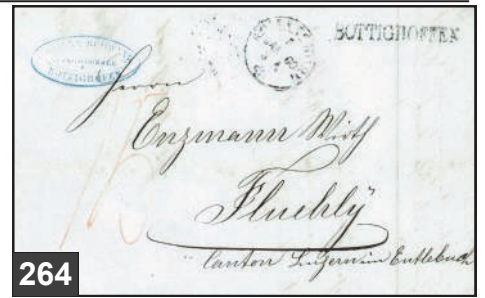 BOTTIGHOFFEN
BOTTIGHOFEN
Herrn
Enzmann Wirth
Fluehlÿ
Canton Luzern im Entlebuch
264